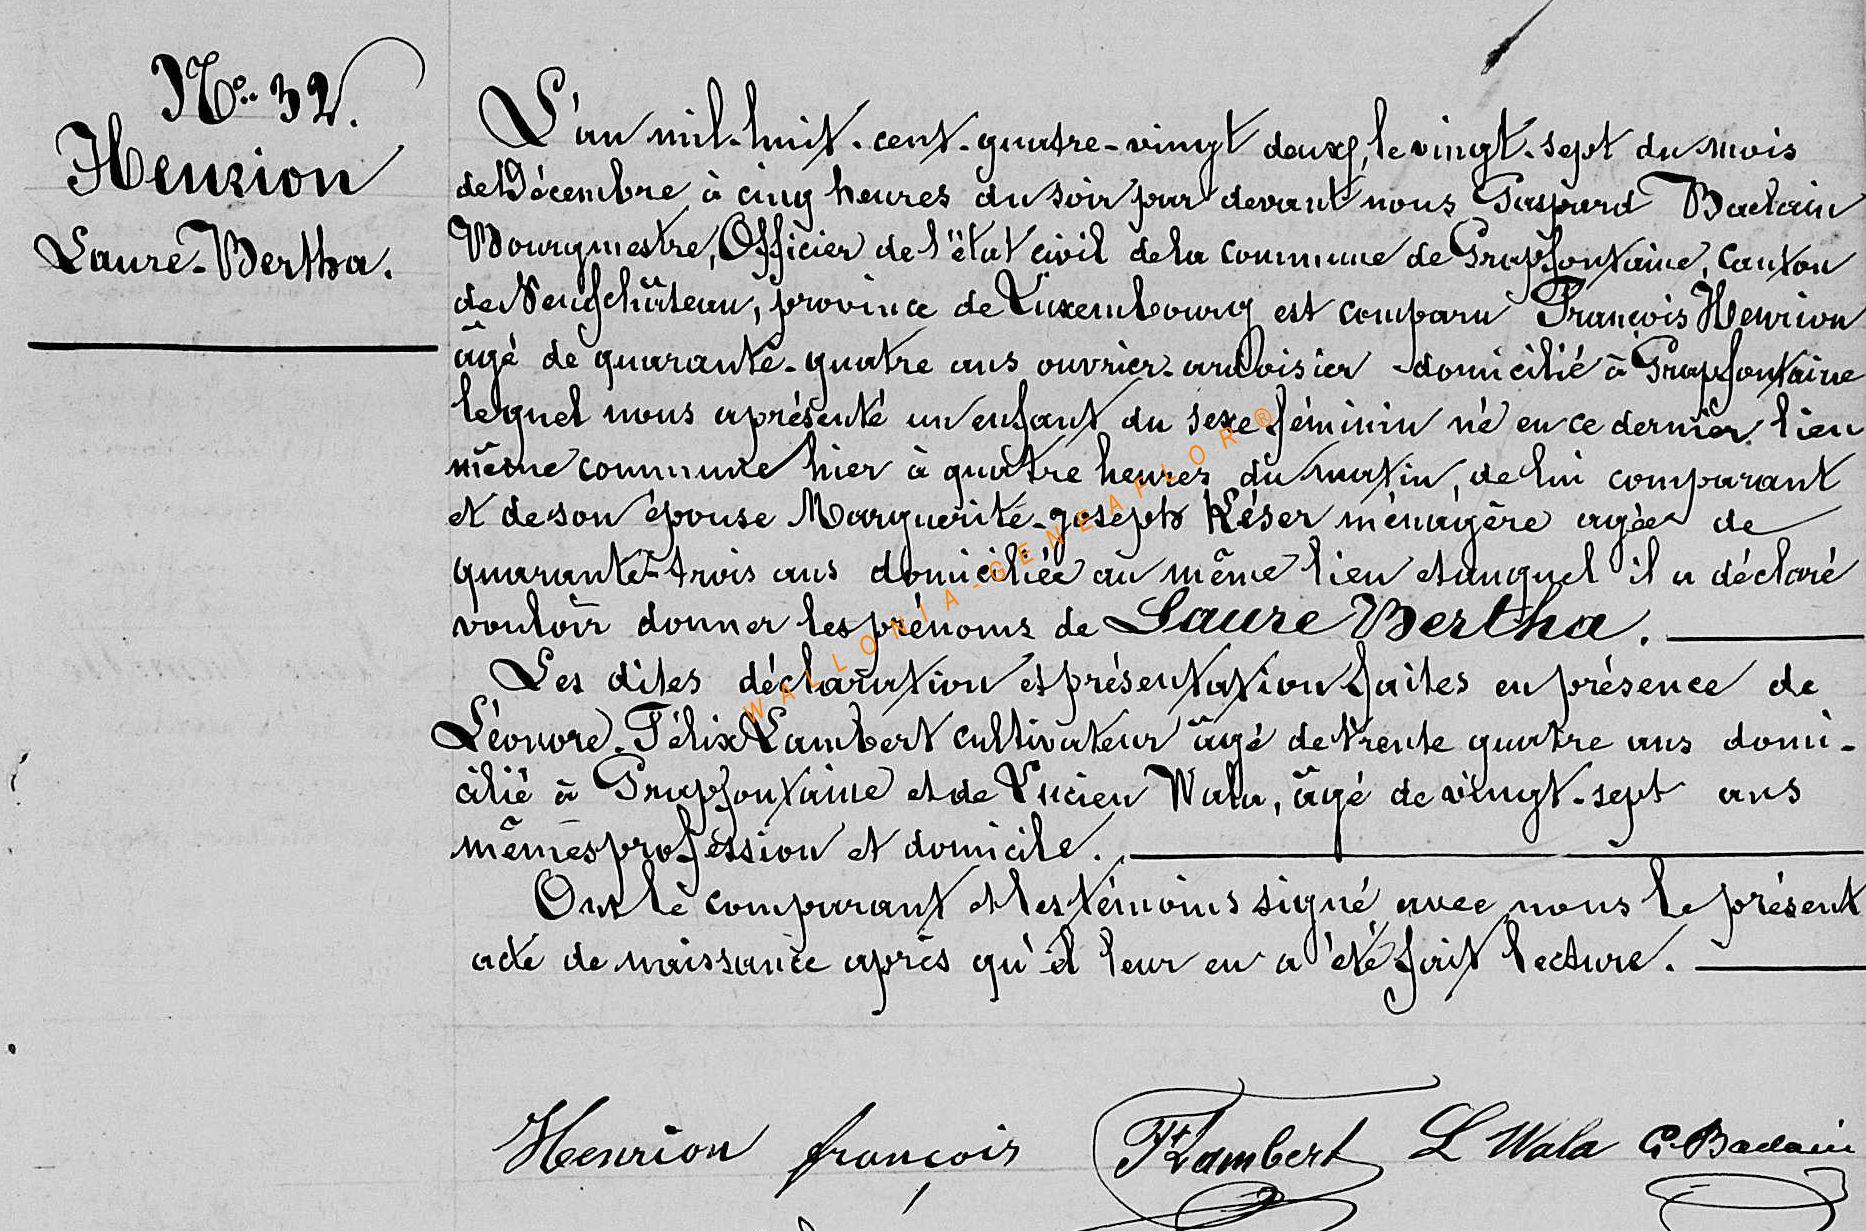 No. 32.
Henrion
Laure-Bertha.
L'an mil-huit-cent-quatre-vingt deux, le vingt-sept du mois
de Décembre à cinq heures du soir par devant nous Gaspard Baclain
Bourgmestre, Officier de l'état civil de la commune de Grapfontaine, canton
de Neufchâteau, province de Luxembourg est comparu François Henrion
âgé de quarante-quatre ans ouvrier-ardoisier domicilié à Grapfontaine
lequel nous a présenté un enfant du sexe féminin né en ce dernier lieu
même commune hier à quatre heures du matin, de lui comparant
et de son épouse Marguerite-Joseph Késer ménagère agée de
quarante-trois ans domiciliée au même lieu et auquel il a déclaré
vouloir donner les prénoms de Laure Bertha.
Les dites déclaration et présentation faites en présence de
Léonore-Félix Lambert cultivateur âgé de trente quatre ans domi-
cilié à Grapfontaine et de Lucien Wala, âgé de vingt-sept ans
mêmes profession et domicile.
Ont le comparant et les témoins signé avec nous le présent
acte de naissance après qu'il leur en a été fait lecture.
Henrion françois Ft Lambert L Wala G. Baclain
WALLONIA-GENEAFLOR®